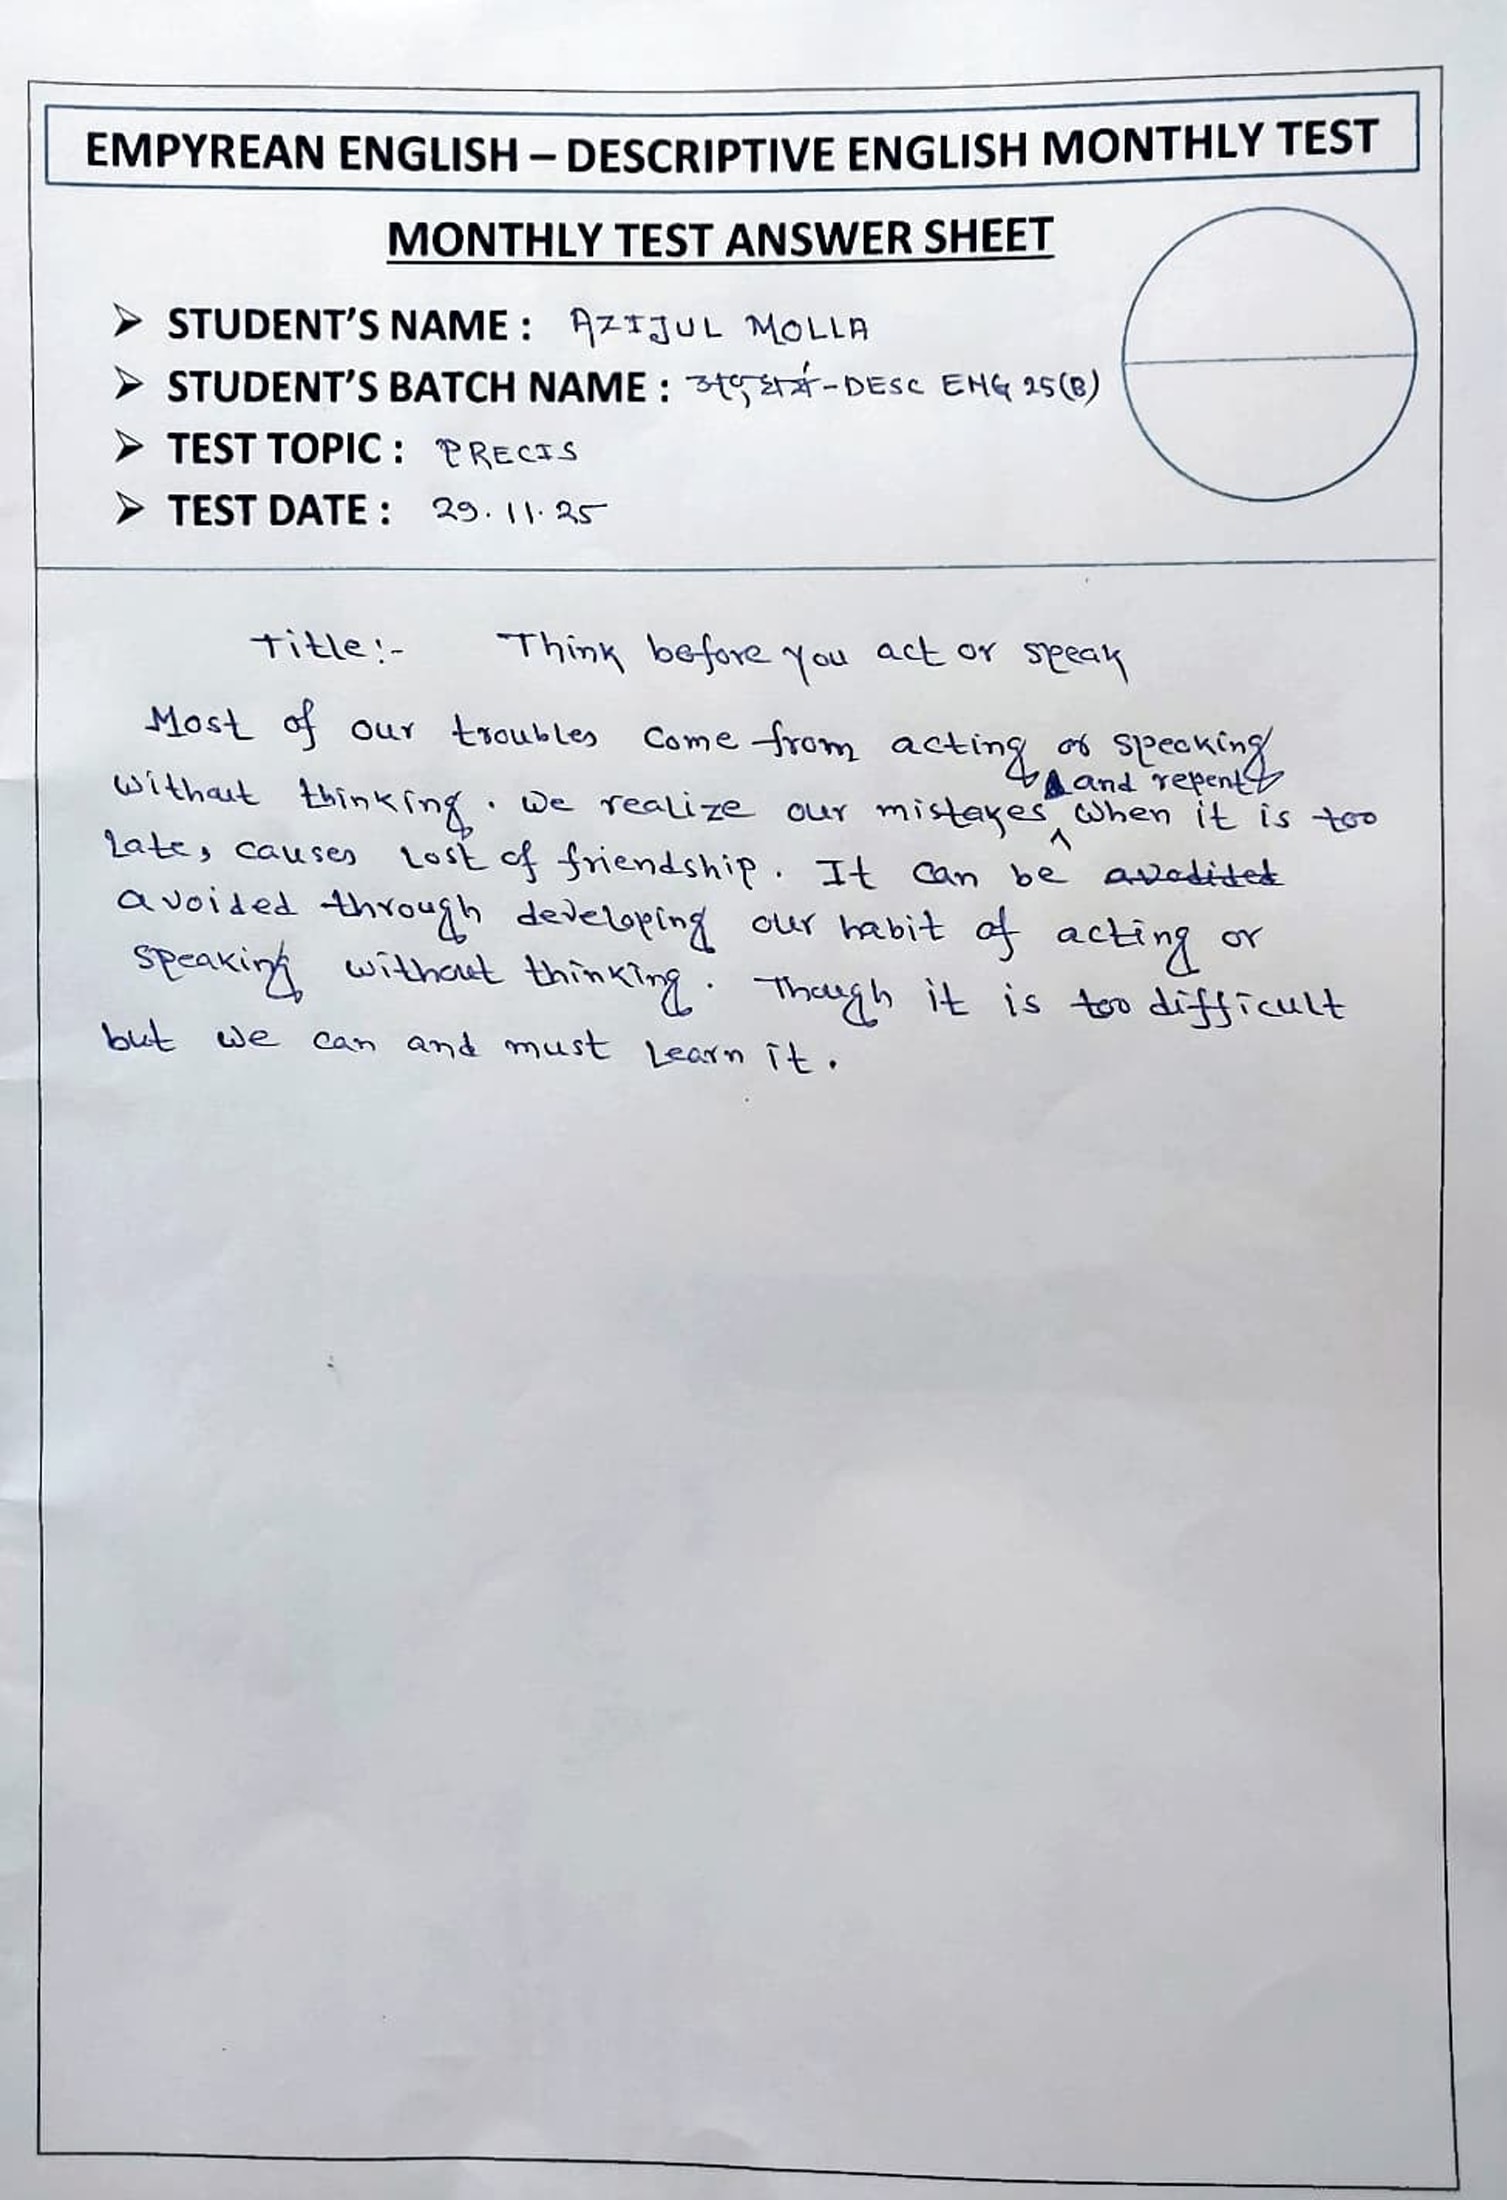 EMPYREAN ENGLISH – DESCRIPTIVE ENGLISH MONTHLY TEST
MONTHLY TEST ANSWER SHEET
➢ STUDENT'S NAME : AZIJUL MOLLA
➢ STUDENT'S BATCH NAME : -DESC ENG 25(B)
➢ TEST TOPIC : PRECIS
➢ TEST DATE : 29.11.25
Title:- Think before you act or speak
Most of our troubles come from acting or speaking
without thinking. We realize our mistakes and repent when it is too
late, causes lost of friendship. It can be avodited
avoided through developing our habit of acting or
speaking without thinking. Though it is too difficult
but we can and must learn it.